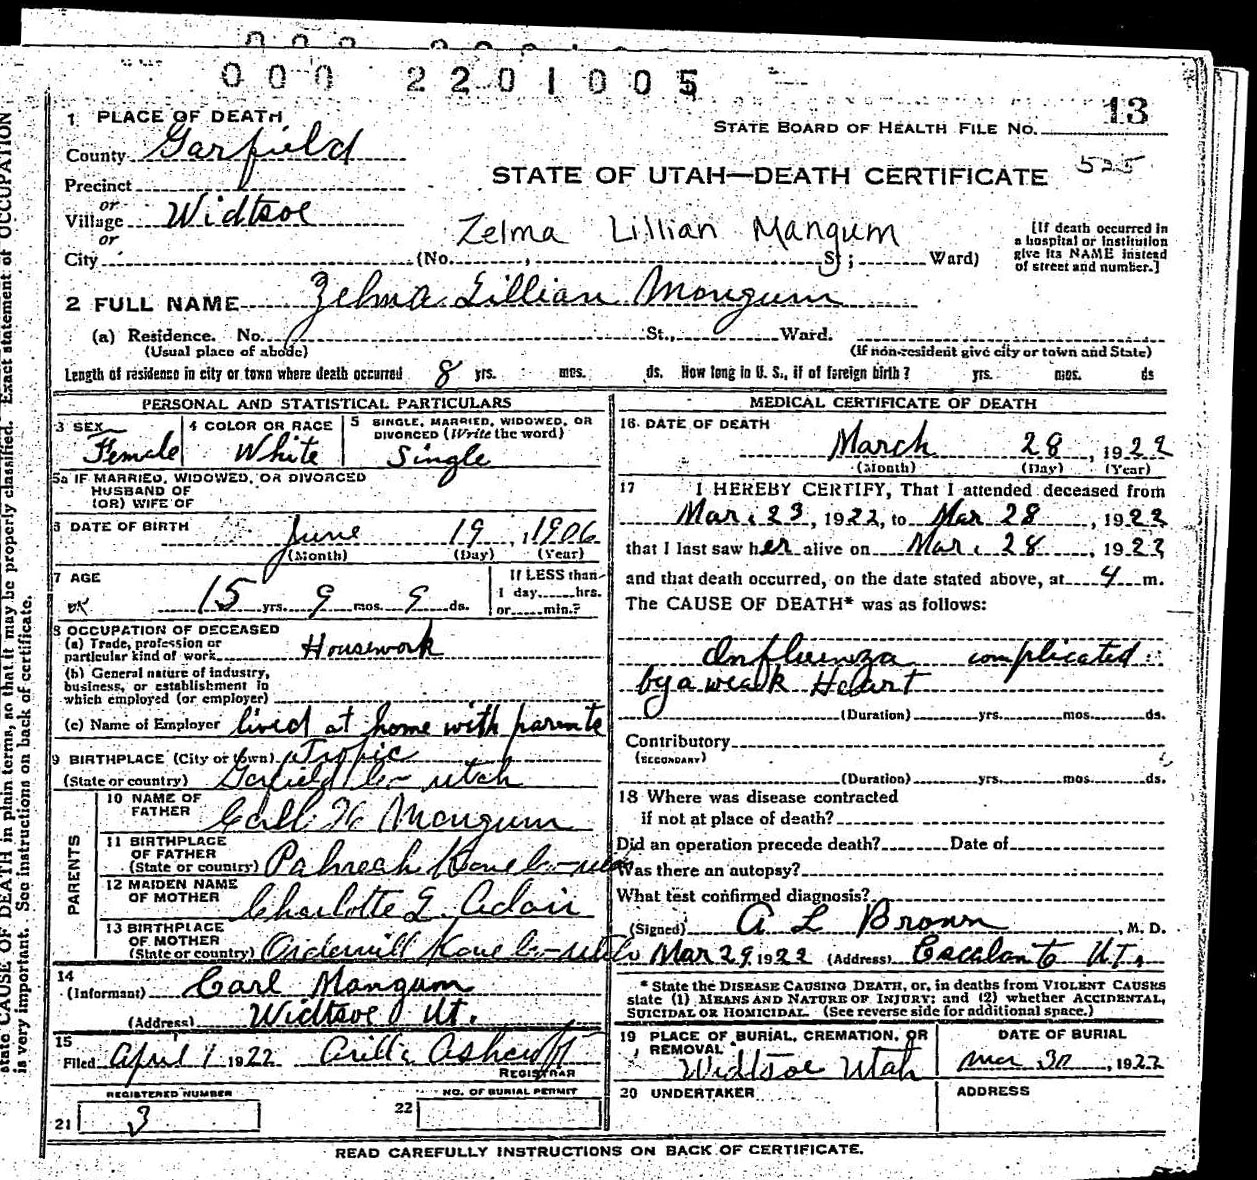 000 2201005
13
1 PLACE OF DEATH
STATE BOARD OF HEALTH FILE No.
County Garfield
525
STATE OF UTAH—DEATH CERTIFICATE
Precinct
or
Village Widtsoe
or
Zelma Lillian Mangum
City (No. , St; Ward)
[If death occurred in
a hospital or institution
give its NAME instead
of street and number.]
2 FULL NAME Zelma Lillian Mangum
(a) Residence. No. St., Ward.
(Usual place of abode)
(If non-resident give city or town and State)
Length of residence in city or town where death occurred 8 yrs. mos. ds. How long in U. S., if of foreign birth? yrs. mos. ds
PERSONAL AND STATISTICAL PARTICULARS
3 SEX
Female
4 COLOR OR RACE
White
5 SINGLE, MARRIED, WIDOWED, OR
DIVORCED (Write the word)
Single
5a IF MARRIED, WIDOWED, OR DIVORCED
HUSBAND OF
(OR) WIFE OF
6 DATE OF BIRTH
June 19, 1906
(Month) (Day) (Year)
7 AGE
15 yrs. 9 mos. 9 ds.
If LESS than
1 day hrs.
or min.?
8 OCCUPATION OF DECEASED
(a) Trade, profession or
particular kind of work Housework
(b) General nature of industry,
business, or establishment in
which employed (or employer)
(c) Name of Employer lived at home with parents
9 BIRTHPLACE (City or town) Tropic
(State or country) Garfield Co- Utah
PARENTS
10 NAME OF
FATHER Carl H Mangum
11 BIRTHPLACE
OF FATHER
(State or country) Pahreah Kane Co-Utah
12 MAIDEN NAME
OF MOTHER Charlotte E. Adair
13 BIRTHPLACE
OF MOTHER
(State or country) Orderville Kane Co-Utah
14
(Informant) Carl Mangum
(Address) Widtsoe Ut.
15
Filed April 1 1922 Ashcroft
REGISTRAR
REGISTERED NUMBER
21 3
NO. OF BURIAL PERMIT
22
MEDICAL CERTIFICATE OF DEATH
16 DATE OF DEATH
March 28, 1922
(Month) (Day) (Year)
17 I HEREBY CERTIFY, That I attended deceased from
Mar. 23, 1922, to Mar 28, 1922
that I last saw her alive on Mar. 28, 1922
and that death occurred, on the date stated above, at 4 m.
The CAUSE OF DEATH* was as follows:
Influenza complicated
by a weak Heart
(Duration) yrs. mos. ds.
Contributory
(SECONDARY)
(Duration) yrs. mos. ds.
18 Where was disease contracted
if not at place of death?
Did an operation precede death? Date of
Was there an autopsy?
What test confirmed diagnosis?
(Signed) A L Brown, M. D.
Mar 29 1922 (Address) Escalante Ut.
* State the DISEASE CAUSING DEATH, or, in deaths from VIOLENT CAUSES
state (1) MEANS AND NATURE OF INJURY; and (2) whether ACCIDENTAL,
SUICIDAL OR HOMICIDAL. (See reverse side for additional space.)
19 PLACE OF BURIAL, CREMATION, OR
REMOVAL
Widtsoe Utah
DATE OF BURIAL
Mar 30, 1922
20 UNDERTAKER
ADDRESS
READ CAREFULLY INSTRUCTIONS ON BACK OF CERTIFICATE.
state CAUSE OF DEATH in plain terms, so that it may be properly classified. Exact statement of OCCUPATION
is very important. See instructions on back of certificate.